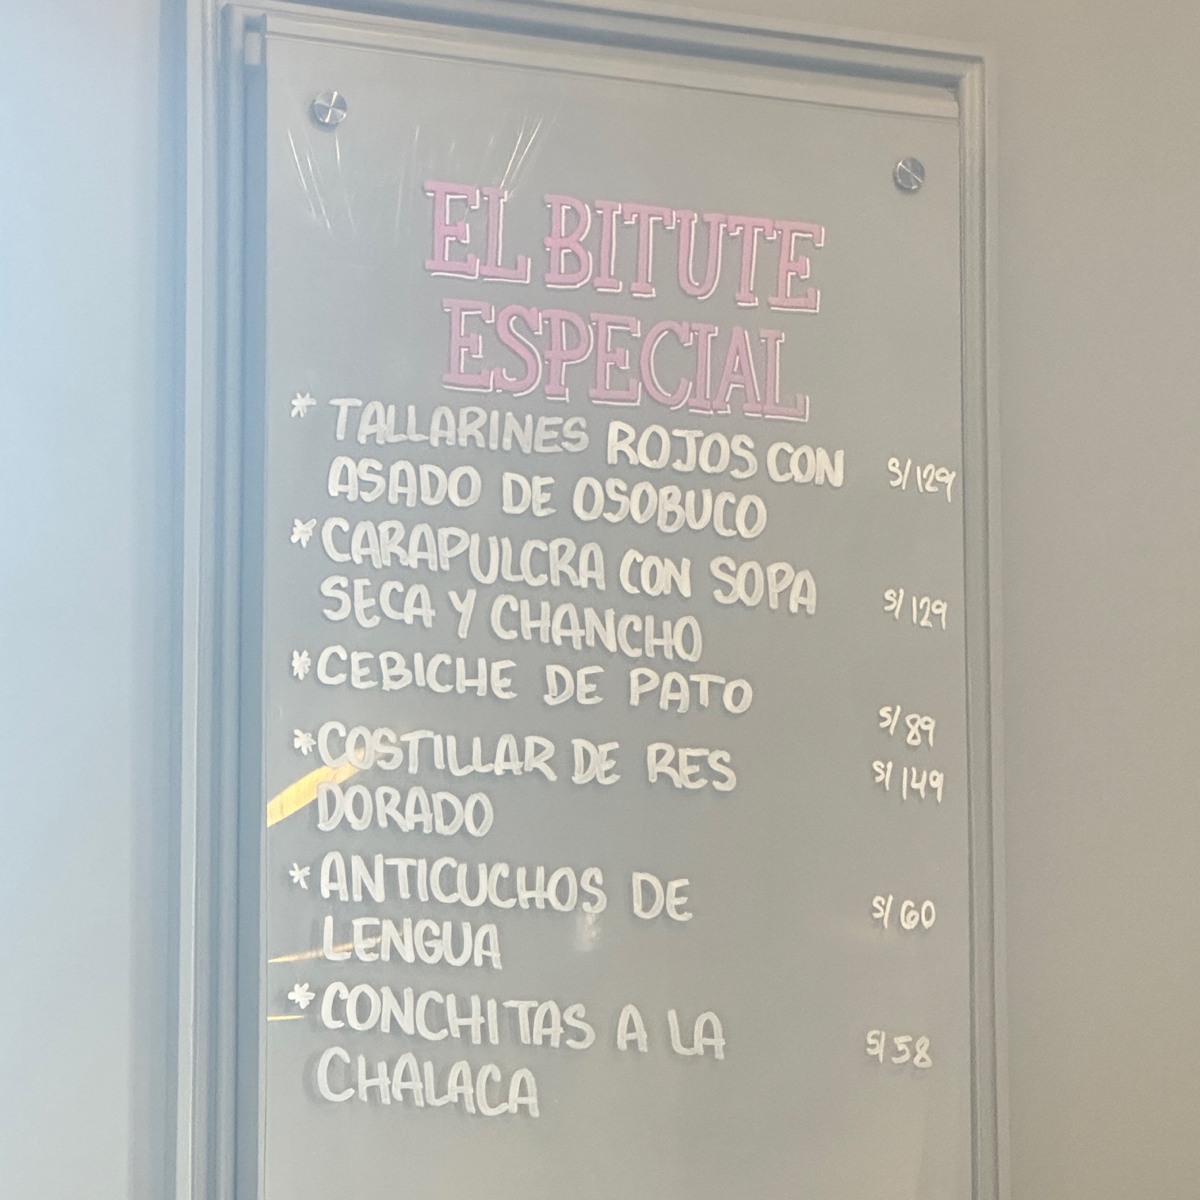 EL BITUTE
ESPECIAL
* TALLARINES ROJOS CON S/129
ASADO DE OSOBUCO
* CARAPULCRA CON SOPA S/129
SECA Y CHANCHO
* CEBICHE DE PATO S/89
* COSTILLAR DE RES S/149
DORADO
* ANTICUCHOS DE S/60
LENGUA
* CONCHITAS A LA S/58
CHALACA